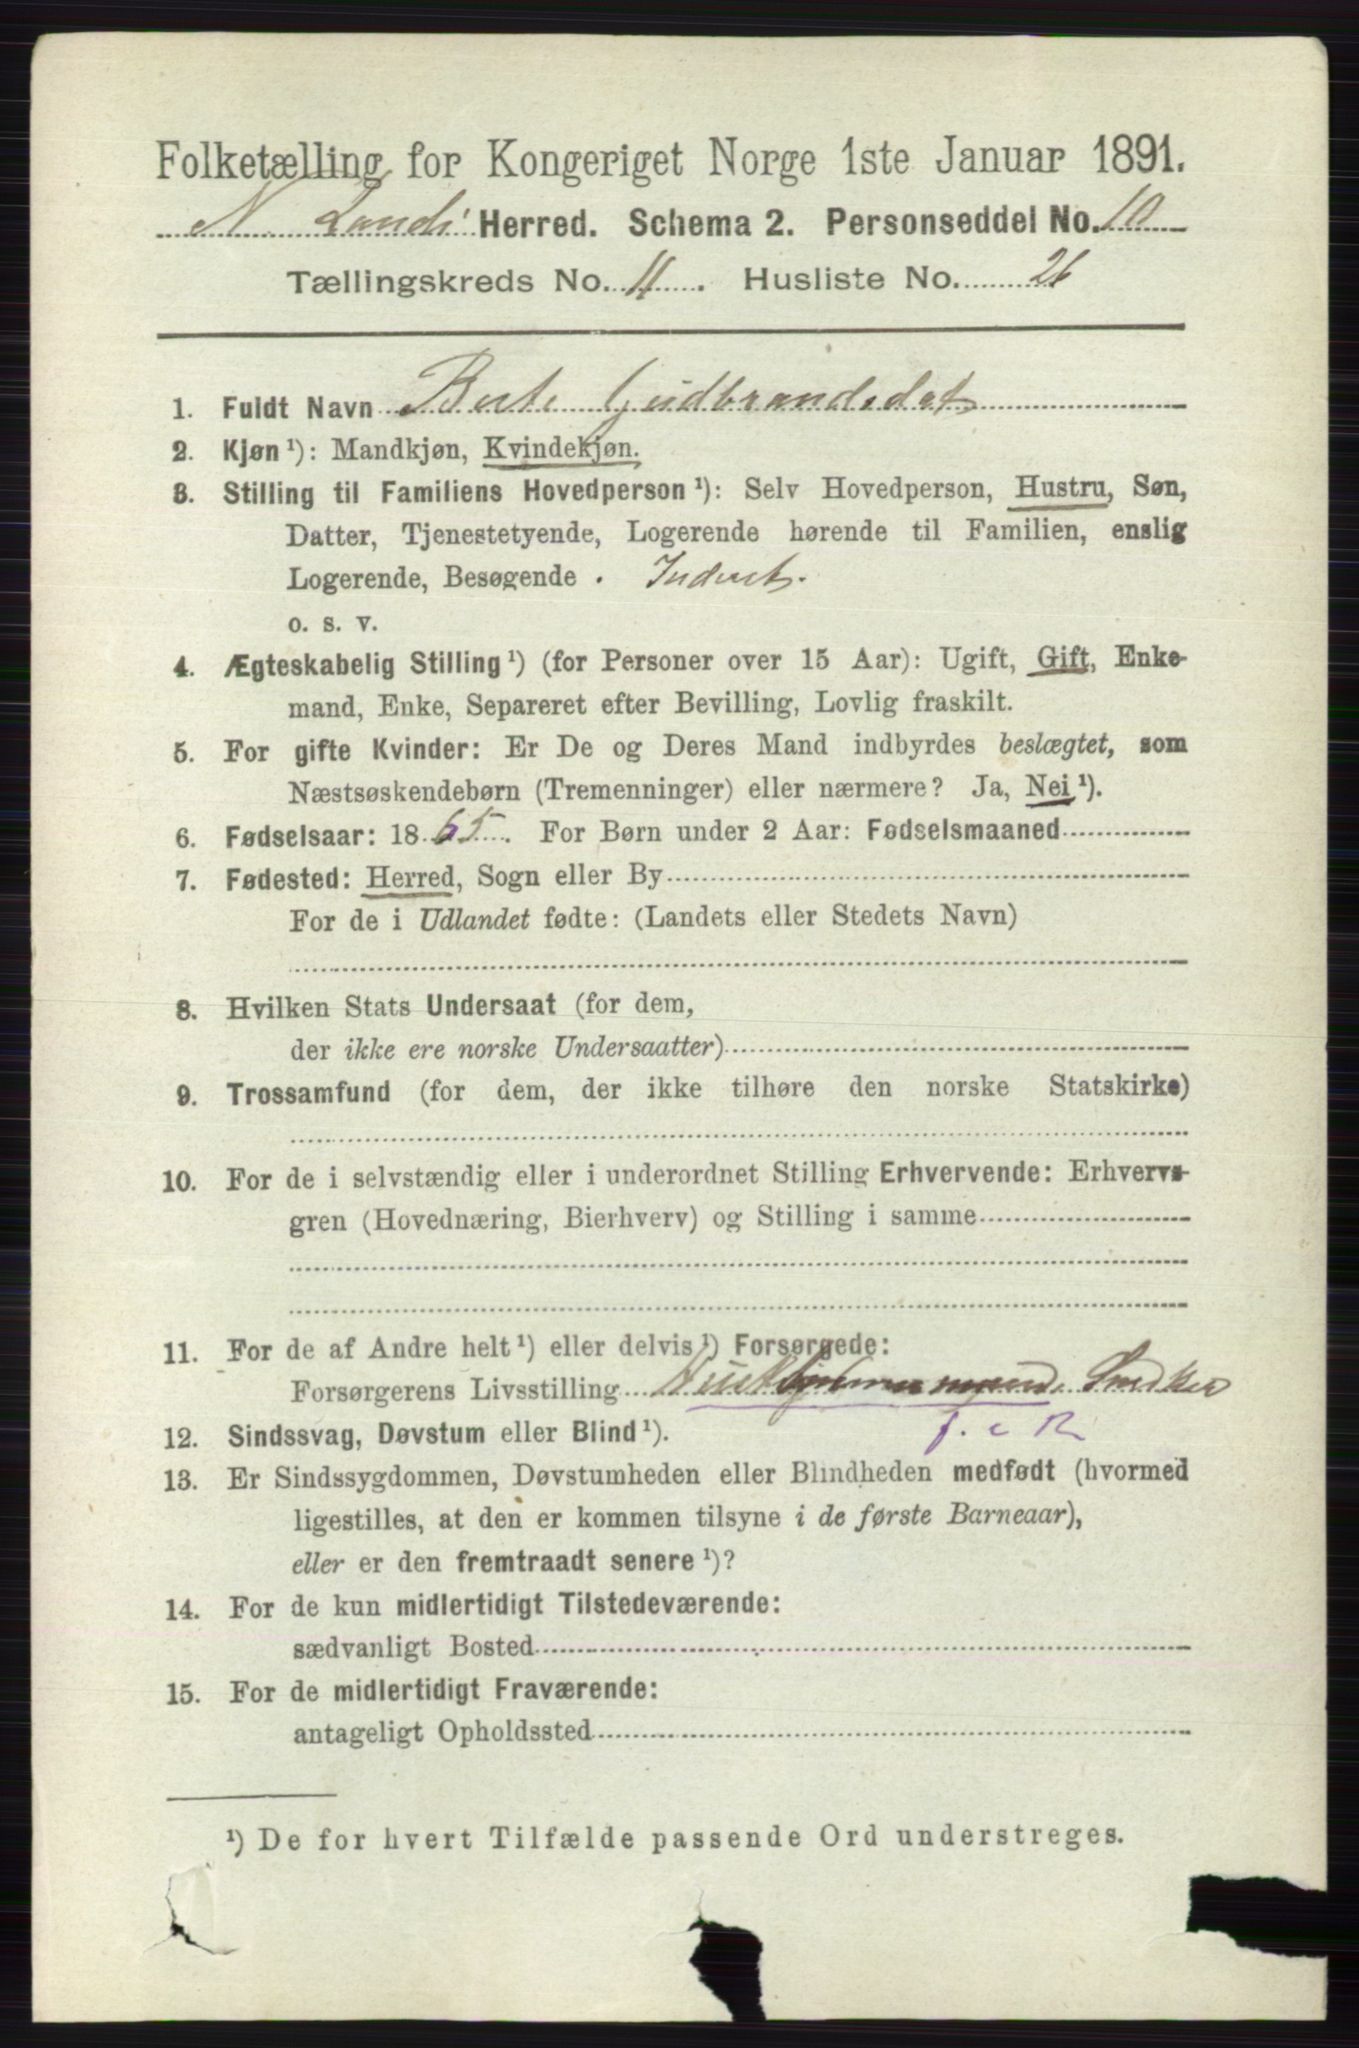 Folketælling for Kongeriget Norge 1ste Januar 1891.
N. Lands Herred. Schema 2. Personseddel No. 10
Tællingskreds No. 11. Husliste No. 26
1. Fuldt Navn Berte Gudbrandsdat
2. Kjøn ¹): Mandkjøn, Kvindekjøn.
3. Stilling til Familiens Hovedperson ¹): Selv Hovedperson, Hustru, Søn,
Datter, Tjenestetyende, Logerende hørende til Familien, enslig
Logerende, Besøgende . Inderst.
o. s. v.
4. Ægteskabelig Stilling ¹) (for Personer over 15 Aar): Ugift, Gift, Enke-
mand, Enke, Separeret efter Bevilling, Lovlig fraskilt.
5. For gifte Kvinder: Er De og Deres Mand indbyrdes beslægtet, som
Næstsøskendebørn (Tremenninger) eller nærmere? Ja, Nei ¹).
6. Fødselsaar: 1865. For Børn under 2 Aar: Fødselsmaaned
7. Fødested: Herred, Sogn eller By
For de i Udlandet fødte: (Landets eller Stedets Navn)
8. Hvilken Stats Undersaat (for dem,
der ikke ere norske Undersaatter)
9. Trossamfund (for dem, der ikke tilhøre den norske Statskirke)
10. For de i selvstændig eller i underordnet Stilling Erhvervende: Erhvervs-
gren (Hovednæring, Bierhverv) og Stilling i samme
11. For de af Andre helt ¹) eller delvis ¹) Forsørgede:
Forsørgerens Livsstilling Snedker
12. Sindssvag, Døvstum eller Blind ¹).
13. Er Sindssygdommen, Døvstumheden eller Blindheden medfødt (hvormed
ligestilles, at den er kommen tilsyne i de første Barneaar),
eller er den fremtraadt senere ¹)?
14. For de kun midlertidigt Tilstedeværende:
sædvanligt Bosted
15. For de midlertidigt Fraværende:
antageligt Opholdssted
¹) De for hvert Tilfælde passende Ord understreges.